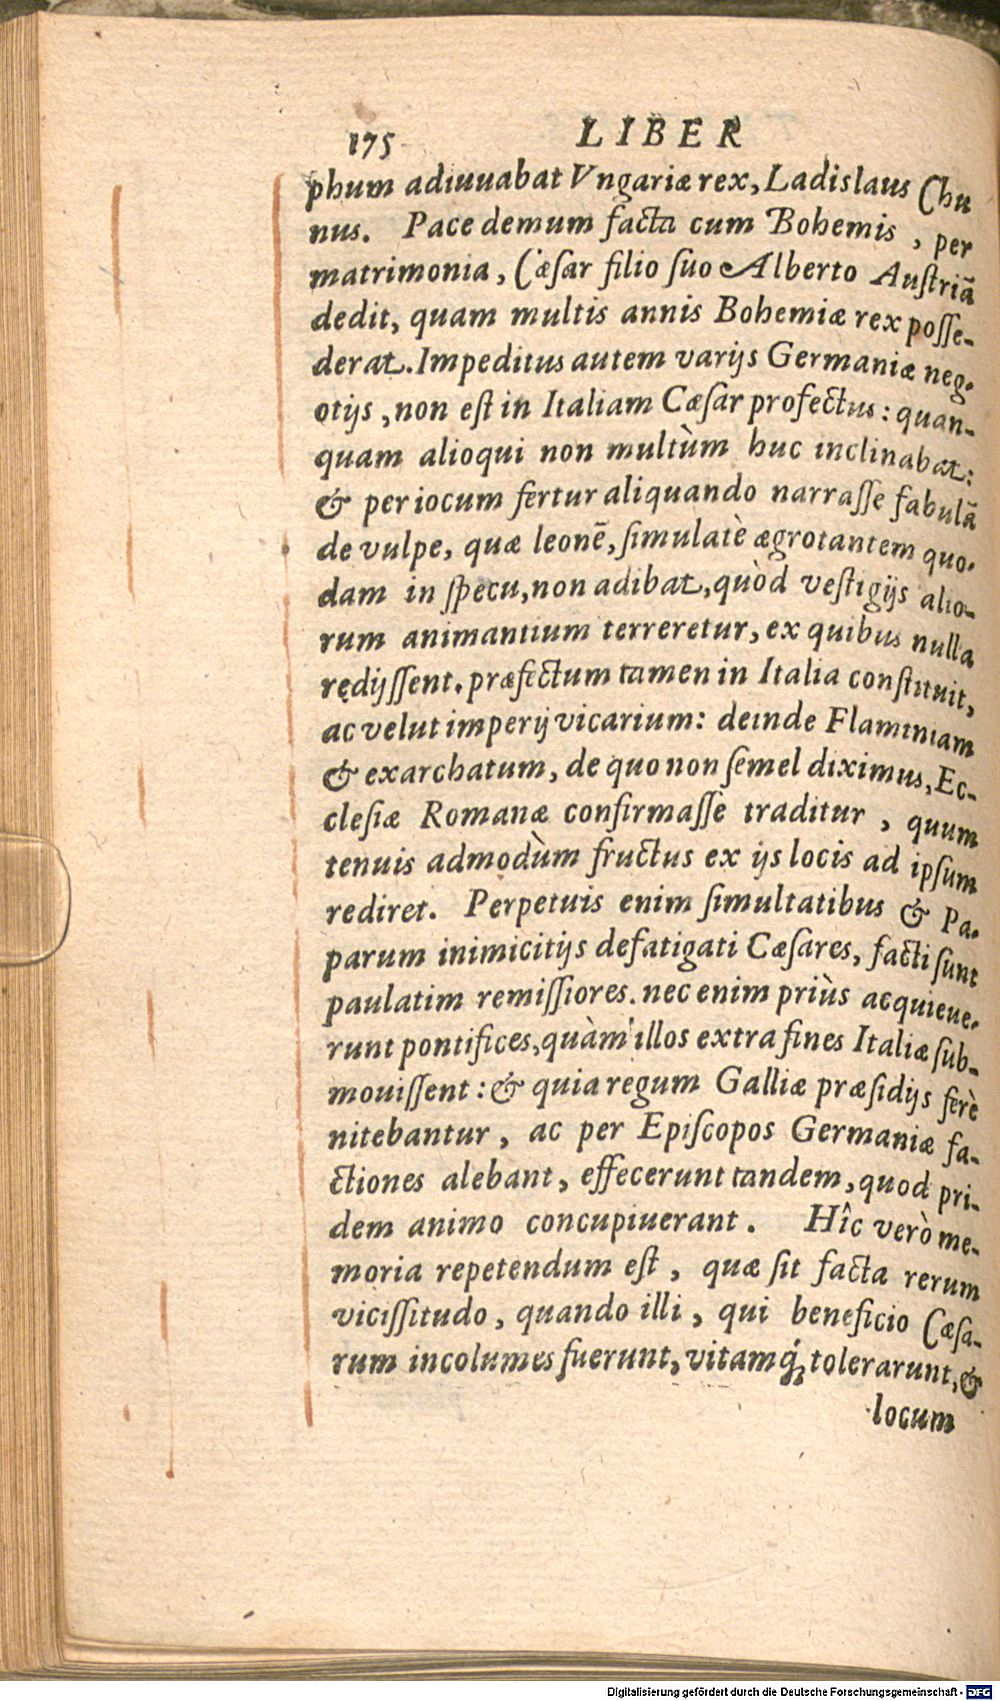 175 LIBER
phum adiuuabat Vngariæ rex, Ladislaus Chu
nus. Pace demum facta cum Bohemis, per
matrimonia, Cæsar filio suo Alberto Austriā
dedit, quam multis annis Bohemiæ rex posse-
derat. Impeditus autem varijs Germaniæ neg-
otijs, non est in Italiam Cæsar profectus: quan-
quam alioqui non multùm huc inclinabat:
& per iocum fertur aliquando narrasse fabulā
de vulpe, quæ leonē, simulatè ægrotantem quo-
dam in specu, non adibat, quòd vestigijs alio-
rum animantium terreretur, ex quibus nulla
redijssent. præfectum tamen in Italia constituit,
ac velut imperij vicarium: deinde Flaminiam
& exarchatum, de quo non semel diximus, Ec-
clesiæ Romanæ confirmasse traditur, quum
tenuis admodùm fructus ex ijs locis ad ipsum
rediret. Perpetuis enim simultatibus & Pa-
parum inimicitijs defatigati Cæsares, facti sunt
paulatim remissiores. nec enim priùs acquieue-
runt pontifices, quàm illos extra fines Italiæ sub-
mouissent: & quia regum Galliæ præsidijs ferè
nitebantur, ac per Episcopos Germaniæ fa-
ctiones alebant, effecerunt tandem, quod pri-
dem animo concupiuerant. Hîc verò me-
moria repetendum est, quæ sit facta rerum
vicissitudo, quando illi, qui beneficio Cæsa-
rum incolumes fuerunt, vitamq́; tolerarunt, &
locum
Digitalisierung gefördert durch die Deutsche Forschungsgemeinschaft - DFG